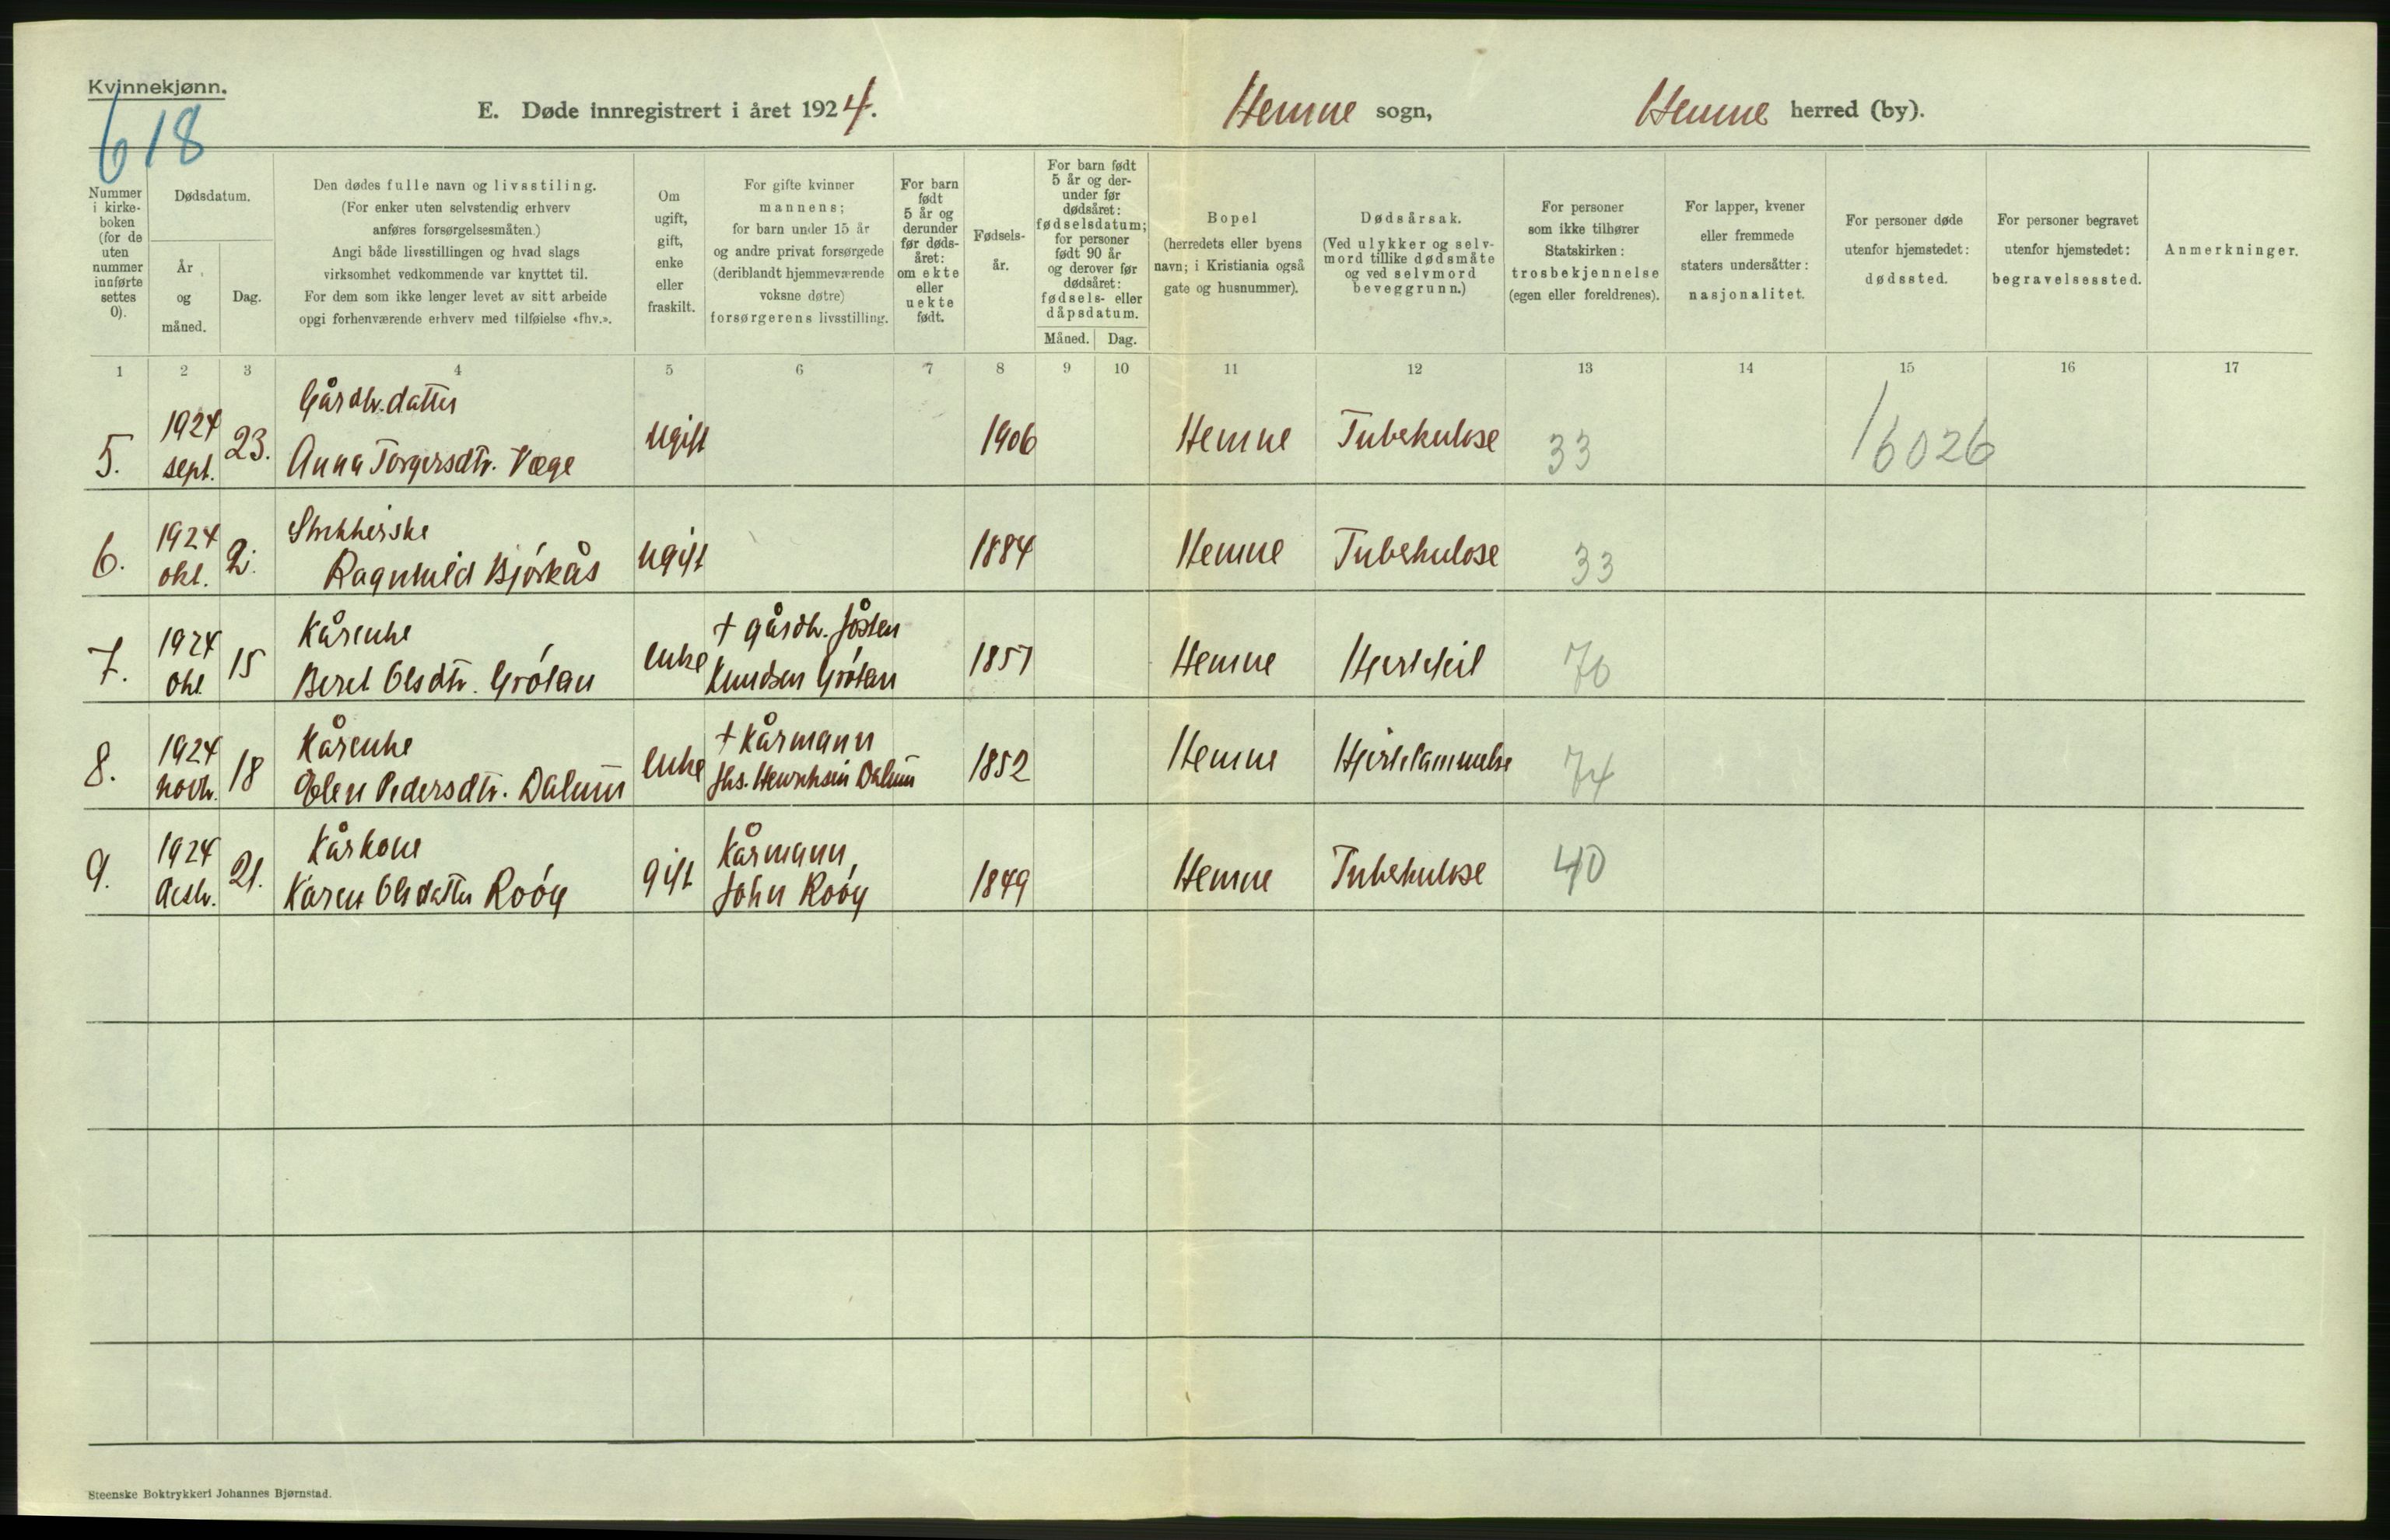 Kvinnekjønn.
618
E. Døde innregistrert i året 1924.
Hemne sogn,
Hemne herred (by).
Nummer i kirke-boken (for de uten nummer innførte settes 0).
Dødsdatum.
År og måned.
Dag.
Den dødes fulle navn og livsstiling.
(For enker uten selvstendig erhverv
anføres forsørgelsesmåten.)
Angi både livsstillingen og hvad slags
virksomhet vedkommende var knyttet til.
For dem som ikke lenger levet av sitt arbeide
opgi forhenværende erhverv med tilføielse «fhv.».
Om
ugift,
gift,
enke
eller
fraskilt.
For gifte kvinner
mannens;
for barn under 15 år
og andre privat forsørgede
(deriblandt hjemmeværende
voksne døtre)
forsørgerens livsstilling.
For barn
født
5 år og
derunder
før døds-
året:
om ekte
eller
uekte
født.
Fødsels-
år.
For barn født
5 år og der-
under før
dødsåret:
fødselsdatum;
for personer
født 90 år
og derover før
dødsåret:
fødsels- eller
dåpsdatum.
Måned. Dag.
Bopel
(herredets eller byens
navn; i Kristiania også
gate og husnummer).
Dødsårsak.
(Ved ulykker og selv-
mord tillike dødsmåte
og ved selvmord
beveggrunn.)
For personer
som ikke tilhører
Statskirken:
trosbekjennelse
(egen eller foreldrenes).
For lapper, kvener
eller fremmede
staters undersåtter:
nasjonalitet.
For personer døde
utenfor hjemstedet:
dødssted.
For personer begravet
utenfor hjemstedet:
begravelsessted.
Anmerkninger.
1 2 3 4 5 6 7 8 9 10 11 12 13 14 15 16 17
Gårdbr.datter
5. 1924 sept. 23. Anna Torgersdtr. Væge ugift 1906 Hemne Tuberkulose 33 16026
Strikkerske
6. 1924 okt. 2. Ragnhild Bjórkås ugift 1884 Hemne Tuberkulose 33
Kårenke + gårdbr. Jósten
7. 1924 okt 15 Beret Olsdtr. Grótan enke Knudsen Grótan 1851 Hemne Hjertefeil 70
Kårenke + Kårmann
8. 1924 novbr. 18 Elen Pedersdtr. Dalum enke Jhs. Henrihsen Dalum 1852 Hemne Hjertelammelse 74
Kårkone Kårmann
9. 1924 desbr. 21. Karen Olsdatter Roóy gift John Roóy 1849 Hemne Tuberkulose 40
Steenske Boktrykkeri Johannes Bjørnstad.